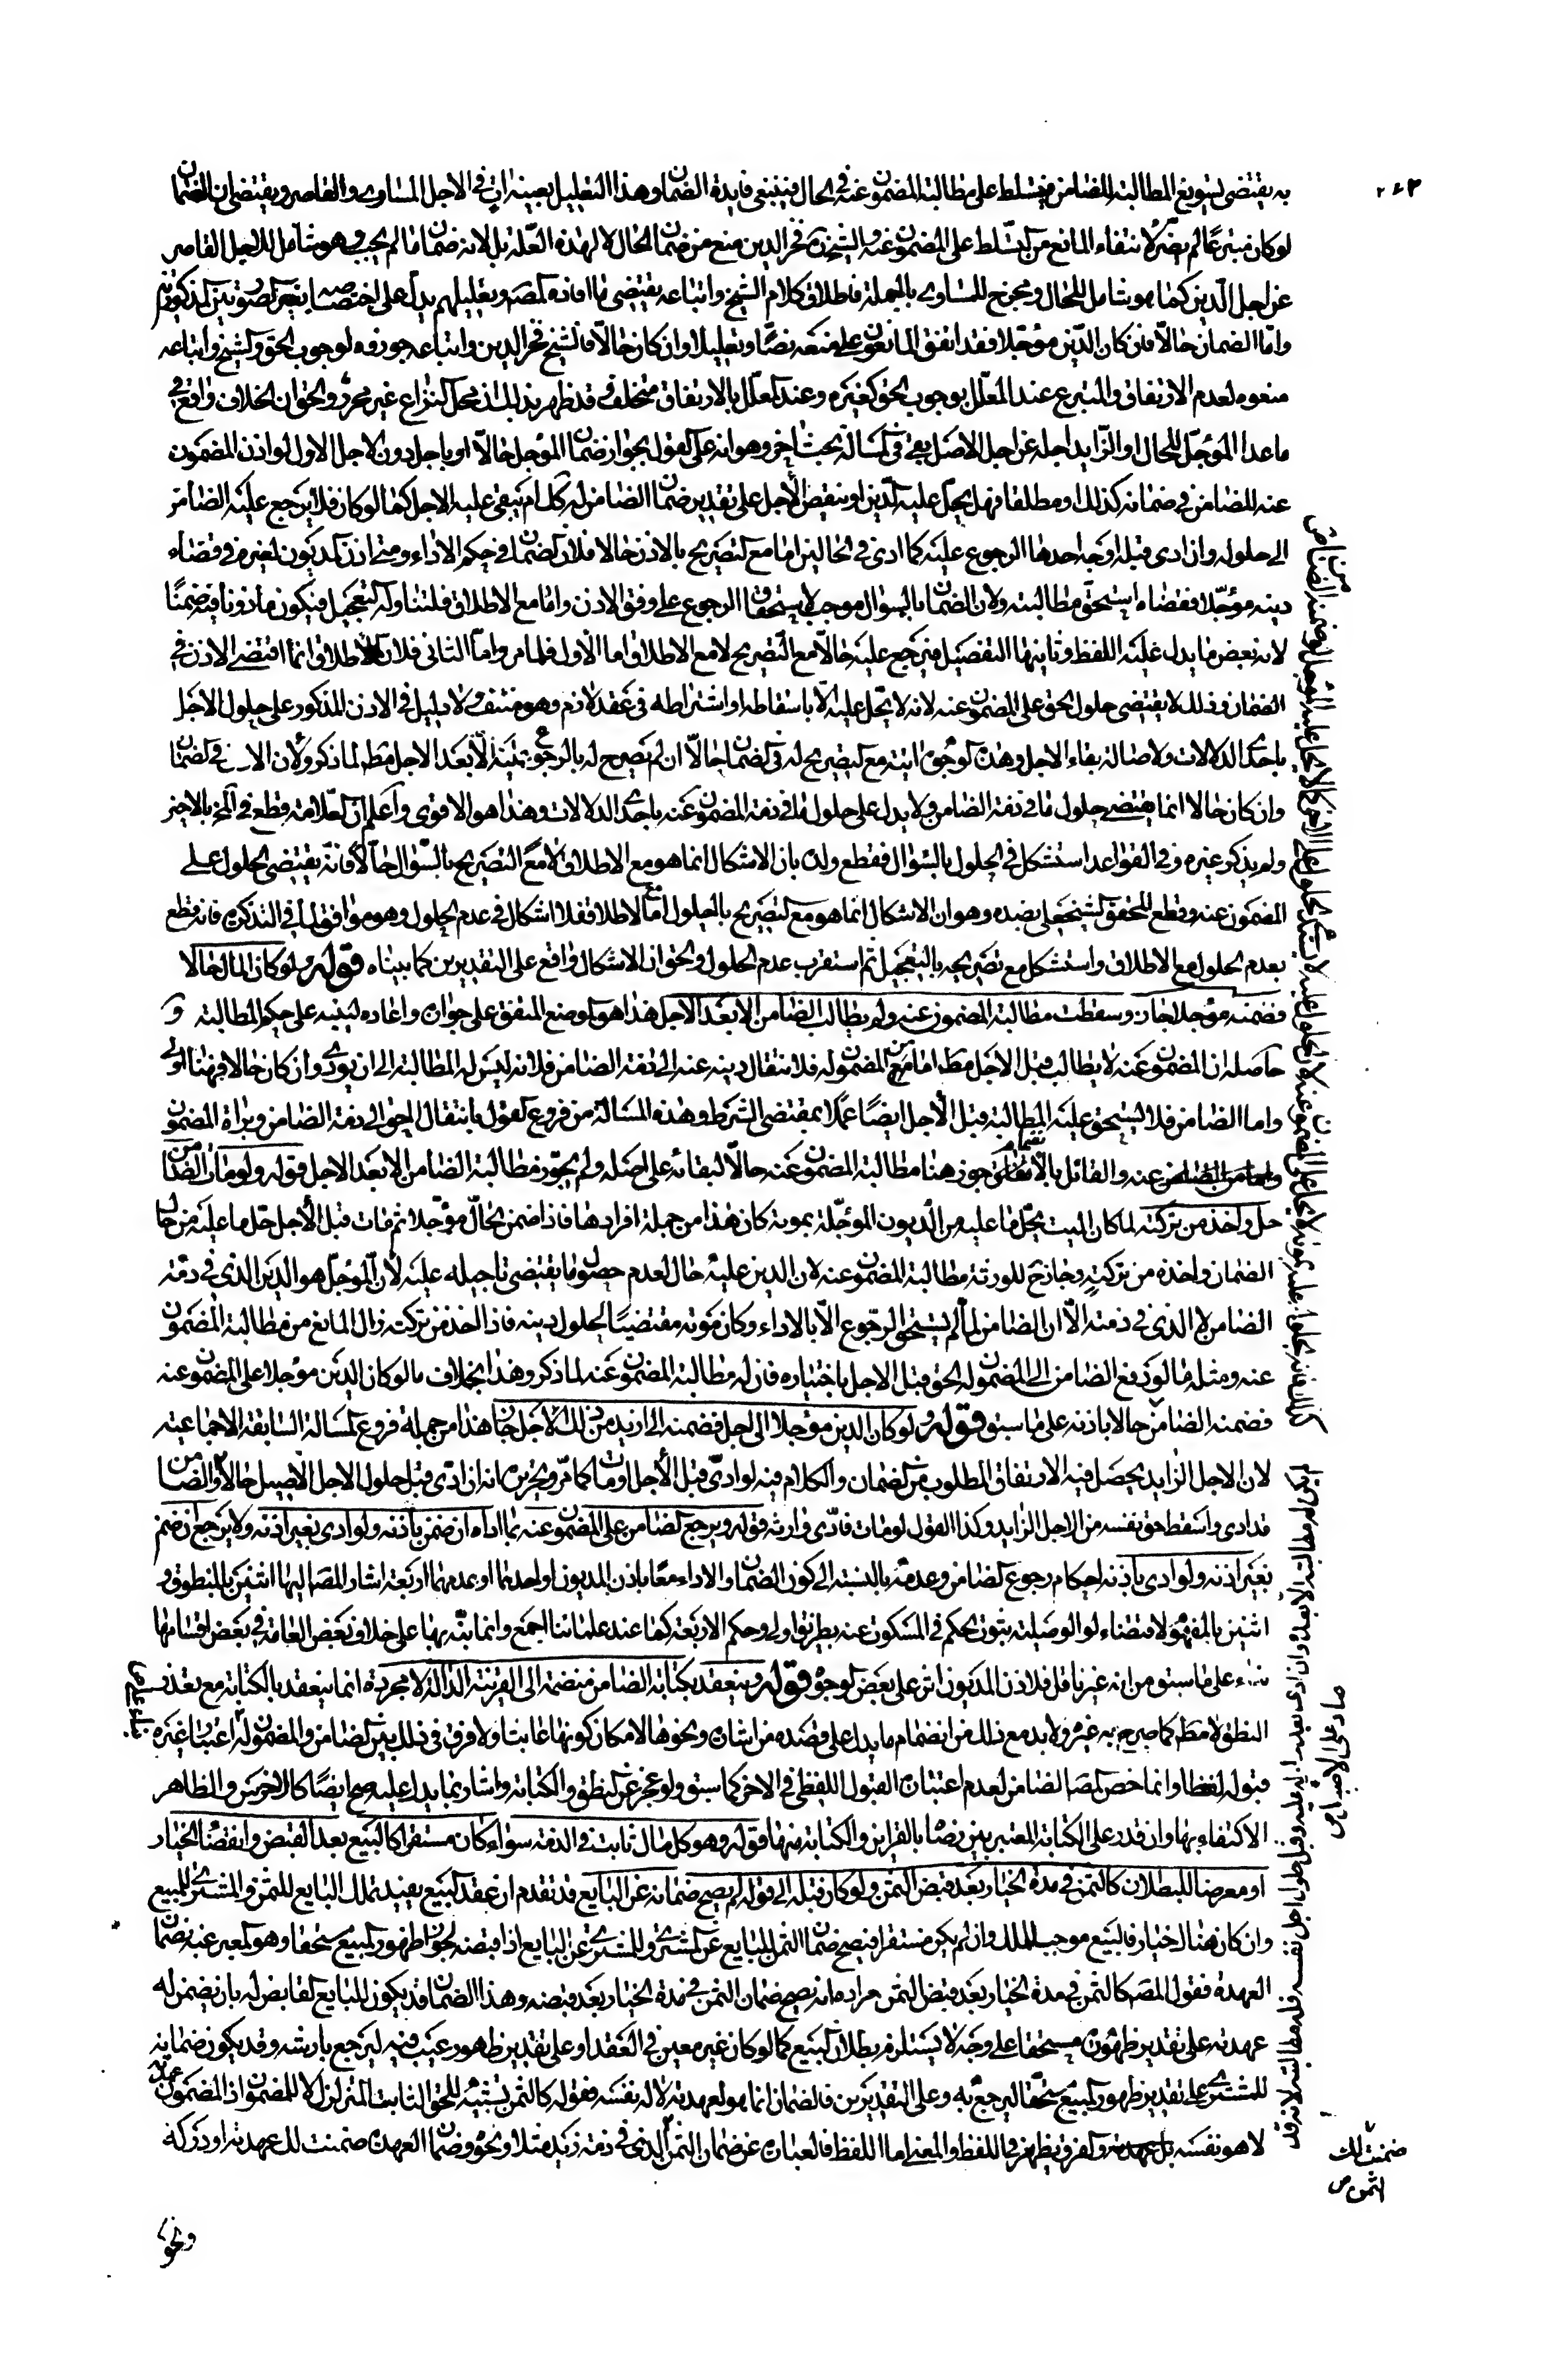 ٢٤٣
به يقتضى تسويغ المطالبة للضامن فيتسلط على مطالبة المضمون عنه فى الحال فينتفى فايدة الضمان وهذا التعليل بعينه ات فى الاجل المساوى والقاصر ويقتضى ان الضمان
لو كان متبرعا لم يضر لانتفاء المانع من التسلط على المضمون عنه والشيخ فخر الدين منع من ضمان الحال لا لهذه العلة بل لانه ضمان ما لم يجب وهو شامل للاجل القاصر
عن اجل الدين كما هو شامل للحال ومخرج للمساوى بالجملة فاطلاق كلام الشيخ واتباعه يقتضى ما افاده المصر وتعليلهم يدل على اختصاصه بغير الصورتين المذكورتين
واما الضمان حالا فان كان الدين مؤجلا فقد اتفق المانعون على منعه نصا وتعليلا وان كان حالا فالشيخ فخر الدين واتباعه جوزوه لوجوب الحق والشيخ واتباعه
منعوه لعدم الارتفاق والمتبرع عند المعلل بوجوب الحق كغيره وعند المعلل بالارتفاق متخلف وقد ظهر بذلك ان محل النزاع غير محرر والحق ان الخلاف واقع فى
ما عدا المؤجل للحال او الزايد اجله عن اجل الاصل بقى فى المسالة بحث اخر وهو انه على القول بجواز ضمان المؤجل حالا او باجل دون الاجل الاول لو اذن المضمون
عنه للضامن فى ضمانه كذلك او مطلقا فهل يحل عليه الدين او ينقص الاجل على تقدير ضمان الضامن له كك ام يبقى عليه الاجل كما لو كان فلا يرجع عليه الضامن
الى حلوله وان ادى قبله اوجه احدها الرجوع عليه كما ادى فى الحالين اما مع التصريح بالاذن حالا فلان الضمان فى حكم الاداء ومتى اذن المديون لغيره فى قضاء
دينه مؤجلا فقضاه استحق مطالبته ولان الضمان بالسؤال موجب لاستحقاق الرجوع على وفق الاذن واما مع الاطلاق فلتناوله التعجيل فيكون ماذونا فيه ضمنا
لانه بعض ما يدل عليه اللفظ وثانيها التفصيل فيرجع عليه حالا مع التصريح لا مع الاطلاق اما الاول فلما مر واما الثانى فلان الاطلاق انما اقتضى الاذن فى
الضمان وذلك لا يقتضى حلول الحق على المضمون عنه لانه لا يحل عليه الا باسقاطه او اشتراطه فى عقد لازم وهو منتف ولا دليل فى الاذن المذكور على حلول الاجل
باحدى الدلالات ولاصالة بقاء الاجل وهذه الوجوه اتية مع التصريح له فى الضمان حالا ان لم يصرح له بالرجوع عليه الا بعد الاجل مطلقا لما ذكر ولان الاذن فى الضمان
وان كان حالا انما يقتضى حلول ما فى ذمة الضامن ولا يدل على حلول ما فى ذمة المضمون عنه باحدى الدلالات وهذا هو الاقوى واعلم ان العلامة قطع فى بالاخير
ولم يذكر غيره وفى القواعد استشكل فى الحلول بالسؤال فقطع ولده بان الاشكال انما هو مع الاطلاق لا مع التصريح بالسؤال حالا فانه يقتضى الحلول على
المضمون عنه وقطع المحقق الشيخ على بضده وهو ان الاشكال انما هو مع التصريح بالحلول اما مع الاطلاق فلا اشكال فى عدم الحلول وهو موافق لما فى التذكرة فانه قطع
بعدم الحلول مع الاطلاق واستشكل مع تصريحه بالتعجيل ثم استقرب عدم الحلول والحق ان الاشكال واقع على التقديرين كما بيناه قوله ولو كان المال حالا
فضمنه مؤجلا جاز وسقطت مطالبة المضمون عنه ولم يطالب الضامن الا بعد الاجل هذا هو الوضع المتفق على جوازه واعاده لينبه على حكم المطالبة و
حاصله ان المضمون عنه لا يطالب قبل الاجل مطلقا اما من المضمون له فلانتقال دينه عنه الى ذمة الضامن فلانه ليس له المطالبة الى ان يؤدى وان كان حالا فهنا اولى
واما الضامن فلا يستحق عليه المطالبة قبل الاجل ايضا عملا بمقتضى الشرط وهذه المسالة من فروع القول بانتقال الحق الى ذمة الضامن وبراءة المضمون
عنه والقائل بالانضمام جوز هنا مطالبة المضمون عنه حالا لبقائه على اصله ولم يجوز مطالبة الضامن الا بعد الاجل قوله ولو مات الضامن
حل واخذ من تركته لما كان الميت يحل ما عليه من الديون المؤجلة بموته كان هذا من جملة افرادها فاذا ضمن الحال مؤجلا ثم مات قبل الاجل حل ما عليه من مال
الضمان واخذه من تركته وجاز ح للورثة مطالبة المضمون عنه لان الدين عليه حال لعدم حصول ما يقتضى تاجيله عليه لان المؤجل هو الدين الذى فى ذمة
الضامن لا الذى فى ذمته الا ان الضامن لما لم يستحق الرجوع الا بالاداء وكان موته مقتضيا لحلول دينه فاذا اخذ من تركته زال المانع من مطالبة المضمون
عنه ومثله ما لو دفع الضامن الى المضمون له الحق قبل الاجل باختياره فان له مطالبة المضمون عنه لما ذكر وهذا بخلاف ما لو كان الدين مؤجلا على المضمون عنه
فضمنه الضامن حالا باذنه على ما سبق قوله ولو كان الدين مؤجلا الى اجل فضمنه الى ازيد من ذلك الاجل جاز هذا من جملة فروع المسالة السابقة الاجماعية
لان الاجل الزايد يحصل فيه الارتفاق المطلوب من الضمان والكلام فيه لو ادى قبل الاجل او مات كما مر وتحريره انه ان ادى قبل حلول الاجل الاصيل حالا والضامن
قد ادى واسقط حق نفسه من الاجل الزايد وكذا القول لو مات فادى وارثه قوله ويرجع الضامن على المضمون عنه بما اداه ان ضمن باذنه ولو ادى بغير اذنه ولا يرجع اذا ضمن
بغير اذنه ولو ادى باذنه احكام رجوع الضامن وعدمه بالنسبة الى كون الضمان والاداء معا باذن المديون او احدهما او عدمهما اربعة اشار المصر اليها اثنين بالمنطوق و
اثنين بالمفهوم لاقتضاء لو الوصلية ثبوت الحكم فى المسكوت عنه بطريق اولى وحكم الاربعة كما عند علمائنا اجمع وانما نبه بها على خلاف بعض العامة فى بعض اقسامها
بناء على ما سبق من انه غير ناقل فلاذن المديون اثر على بعض الوجوه قوله وينعقد بكتابة الضامن منضمة الى القرينة الدالة لا مجردة انما ينعقد بالكتابة مع تعذر
النطق لا مطلقا كما صرح به غيره ولا بد مع ذلك من انضمام ما يدل على قصده من اشارة ونحوها لامكان كونها عابثا ولا فرق فى ذلك بين الضامن والمضمون له اعتبارا غيره
قبوله لفظا وانما خص المصر الضامن لعدم اعتباره القبول اللفظى فى الاخر كما سبق ولو عجز عن النطق والكتابة واشار بما يدل عليه صح ايضا كالاخرس والظاهر
الاكتفاء بها وان قدر على الكتابة المعتبر بين رضا بالقراين والكتابة منها قوله وهو كل مال ثابت فى الذمة سواء كان مستقرا كالبيع بعد القبض وانقضاء الخيار
او معرضا للبطلان كالثمن فى مدة الخيار بعد قبض الثمن ولو كان قبله الى قوله لم يصح ضمانه عن البايع قد تقدم ان عقد البيع يفيد تملك البايع للثمن والمشترى للمبيع
وان كان هناك خيار فالبيع موجب للملك وان لم يكن مستقرا فيصح ضمان الثمن للبايع عن المشترى وللمشترى عن البايع اذا قبضه لجواز ظهور المبيع مستحقا وهو المعبر عنه بضمان
العهدة فقول المصر كالثمن فى مدة الخيار بعد قبض الثمن مراده انه يصح ضمان الثمن فى مدة الخيار بعد قبضه وهذا الضمان قد يكون للبايع القابض له بان يضمن له
عهدته على تقدير ظهوره مستحقا على وجه لا يستلزم بطلان البيع كما لو كان غير معين فى العقد او على تقدير ظهور عيب فيه ليرجع بارشه وقد يكون ضمانه
للمشترى على تقدير ظهور المبيع مستحقا ليرجع به وعلى التقديرين فالضمان انما هو لعهدته لا له نفسه فقوله كالثمن تشبيه للحق الثابت المتزلزل لا للمضمون اذ المضمون عهدته
لا هو نفسه والفرق يظهر فى اللفظ والمعنى اما اللفظ فالعبارة عن ضمان الثمن الذى فى ذمة زيد مثلا ونحوه وضمان العهدة ضمنت لك عهدته او دركه
ضمنت لك
الثمن ص
ونحو